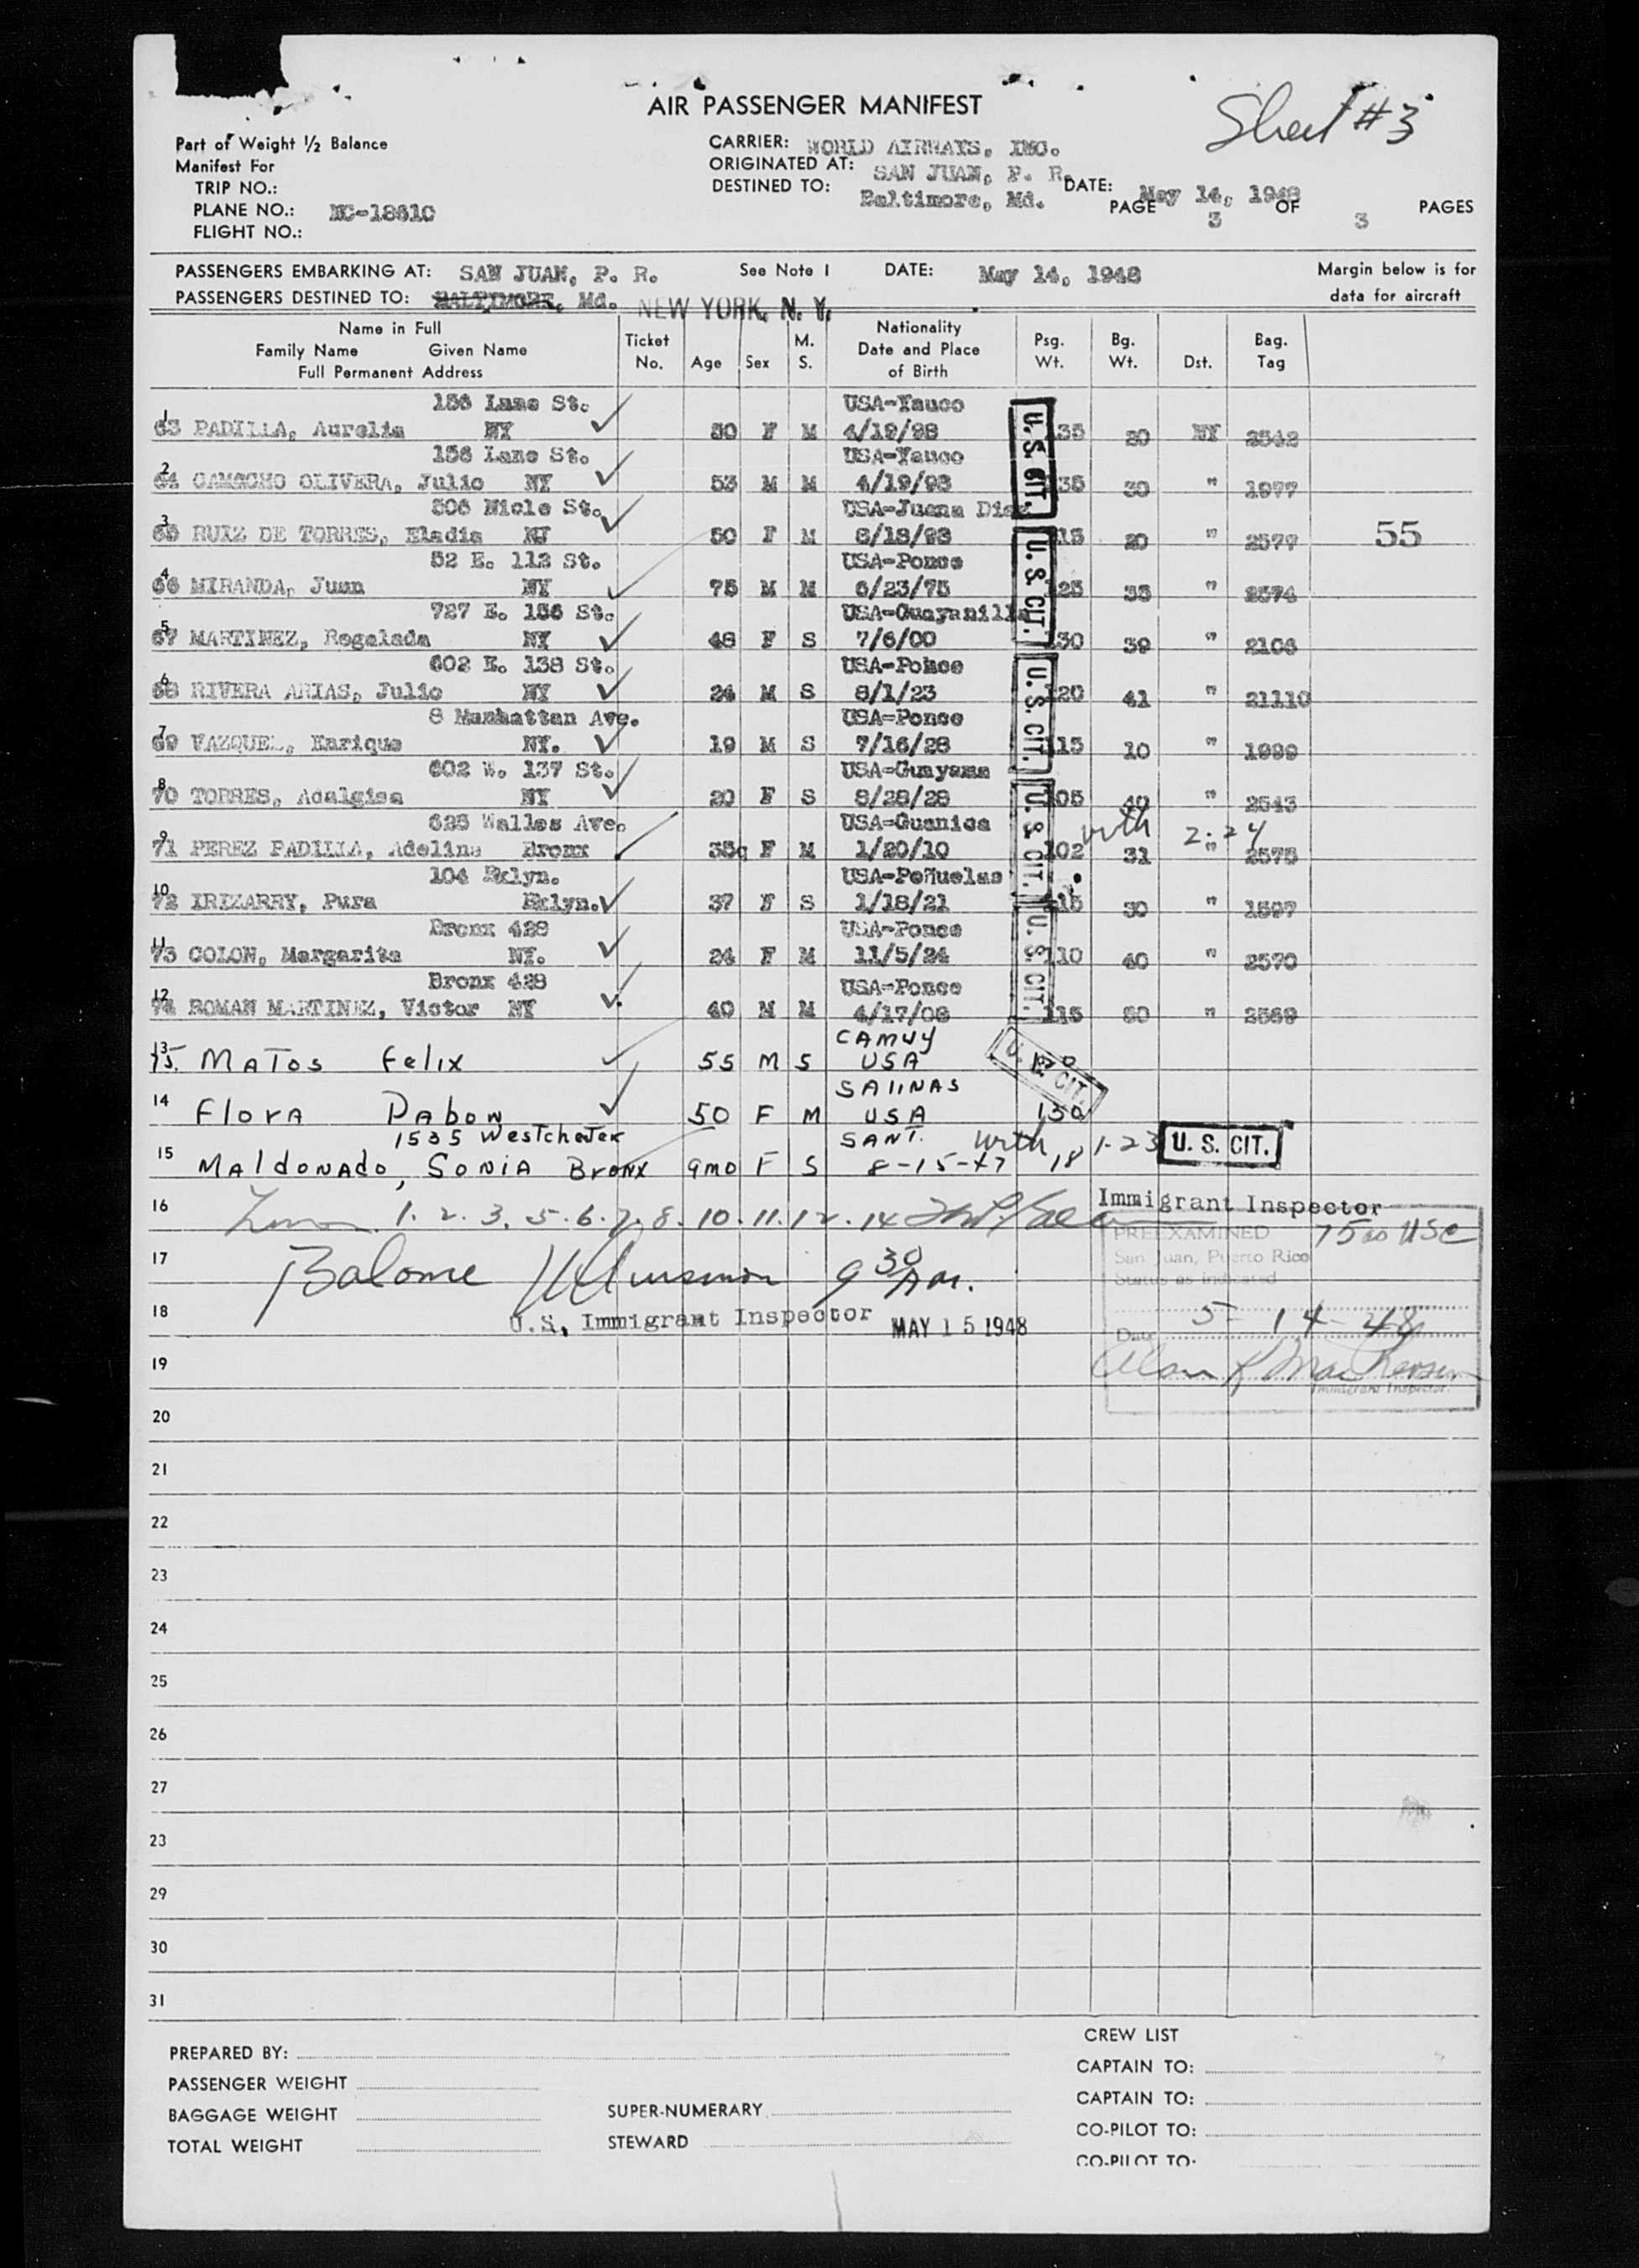 AIR PASSENGER MANIFEST
Sheet #3
Part of Weight 1/2 Balance
Manifest For
TRIP NO.:
PLANE NO.: NC-18610
FLIGHT NO.:
CARRIER: WORLD AIRWAYS, INC.
ORIGINATED AT: SAN JUAN, P. R.
DESTINED TO: Baltimore, Md.
DATE: May 14, 1948
PAGE 3 OF 3 PAGES
PASSENGERS EMBARKING AT: SAN JUAN, P. R. See Note 1 DATE: May 14, 1948
PASSENGERS DESTINED TO: BALTIMORE, Md. NEW YORK, N. Y.
Margin below is for
data for aircraft
Name in Full
Family Name Given Name
Full Permanent Address
Ticket No. Age Sex M. S. Nationality Date and Place of Birth Psg. Wt. Bg. Wt. Dst. Bag. Tag
156 Lane St. USA-Yauco
1 63 PADILLA, Aurelia NY 50 F M 4/19/98 135 20 NY 2542
156 Lane St. USA-Yauco
2 64 CAMACHO OLIVERA, Julio NY 53 M M 4/19/93 135 30 " 1977
506 Nicle St. USA-Juana Diaz
3 65 RUIZ DE TORRES, Eladia NJ 50 F M 8/18/98 115 20 " 2577 55
52 E. 112 St. USA-Ponce
4 66 MIRANDA, Juan NY 75 M M 6/23/75 125 35 " 2574
727 E. 156 St. USA-Guayanilla
5 67 MARTINEZ, Rogelada NY 48 F S 7/6/00 130 39 " 2106
602 E. 138 St. USA-Ponce
6 68 RIVERA ARIAS, Julio NY 24 M S 8/1/23 120 41 " 21110
8 Manhattan Ave. USA-Ponce
7 69 VAZQUEZ, Enrique NY. 19 M S 7/16/28 115 10 " 1989
602 W. 137 St. USA-Guayama
8 70 TORRES, Adalgisa NY 20 F S 8/28/28 105 40 " 2543
625 Walles Ave. USA-Guanica with 2-24
9 71 PEREZ PADILLA, Adelina Bronx 38 F M 1/20/10 102 31 " 2575
104 Bklyn. USA-Peñuelas
10 72 IRIZARRY, Pura Bklyn. 37 F S 1/18/21 115 30 " 1597
Bronx 428 USA-Ponce
11 73 COLON, Margarita NY. 24 F M 11/5/24 110 40 " 2570
Bronx 428 USA-Ponce
12 74 ROMAN MARTINEZ, Victor NY 40 M M 4/17/08 115 50 " 2569
CAMUY
13 75. MATOS Felix 55 M S USA
SALINAS
14 Flora Pabon 50 F M USA 130
1535 Westchester SANT. with 1-23
15 MAldoNAdo, SONIA BroNX 9mo F S 8-15-47 18
U. S. CIT.
U. S. CIT.
U. S. CIT.
U. S. CIT.
U. S. CIT.
U. S. CIT.
U. S. CIT.
16 1. 2. 3. 5. 6. 7. 8. 10. 11. 12. 14
Immigrant Inspector
17 9 30 Am.
18 U.S. Immigrant Inspector MAY 15 1948
PREEXAMINED
San Juan, Puerto Rico
Status as indicated
USC
5-14-48
Date
Immigrant Inspector
19
20
21
22
23
24
25
26
27
23
29
30
31
PREPARED BY:
PASSENGER WEIGHT
BAGGAGE WEIGHT
TOTAL WEIGHT
SUPER-NUMERARY
STEWARD
CREW LIST
CAPTAIN TO:
CAPTAIN TO:
CO-PILOT TO:
CO-PILOT TO: